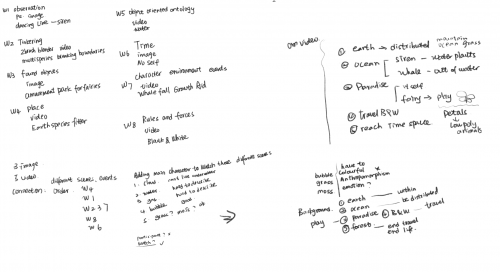 W1 observation
Pc image
dancing line — siren
W2 Tinkering
zbrush blender video
multispecies breaking boundaries
W3 found objects
image
amusement park for fairies
W4 place
video
Earth species filter
W5 object oriented ontology
video
water
W6 Time
image
No self
W7 character environment events
video
whale fall Growth
W8 Rules and forces
video
Black & White
Own video
① earth → distributed maintain ocean grass
② ocean siren - water plants
whale - out of water
③ Paradise
→ play
Petals
↓
low poly animals
④ travel B&W
⑤ reach Time space
3 image
5 video different scenes, events
connection: Order W4
W1
W2 3 7
W8
W6
Adding main character to match three different scenes
1. cant live underwater
2. hard to describe
3. hard to describe
4. bubble good
5. grass? moss? ok
bubble
grass
moss
have to
colourful
Anthropomorphism
emotion?
Background.
① earth within
② ocean be distributed
play — ③ paradise ④ B&W - travel
⑤ forest - end travel
end life.